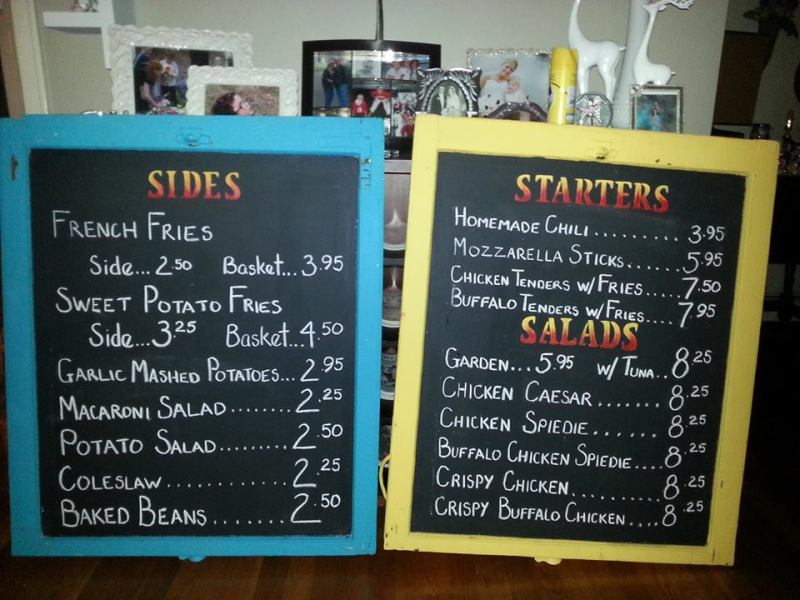 SIDES
FRENCH FRIES
SIDE...2.50 BASKET...3.95
SWEET POTATO FRIES
SIDE...3.25 BASKET...4.50
GARLIC MASHED POTATOES...2.95
MACARONI SALAD........2.25
POTATO SALAD.........2.50
COLESLAW............2.25
BAKED BEANS........2.50
STARTERS
HOMEMADE CHILI.........3.95
MOZZARELLA STICKS......5.95
CHICKEN TENDERS W/FRIES....7.50
BUFFALO TENDERS W/FRIES....7.95
SALADS
GARDEN...5.95 W/TUNA..8.25
CHICKEN CAESAR.......8.25
CHICKEN SPIEDIE.......8.25
BUFFALO CHICKEN SPIEDIE....8.25
CRISPY CHICKEN..........8.25
CRISPY BUFFALO CHICKEN....8.25